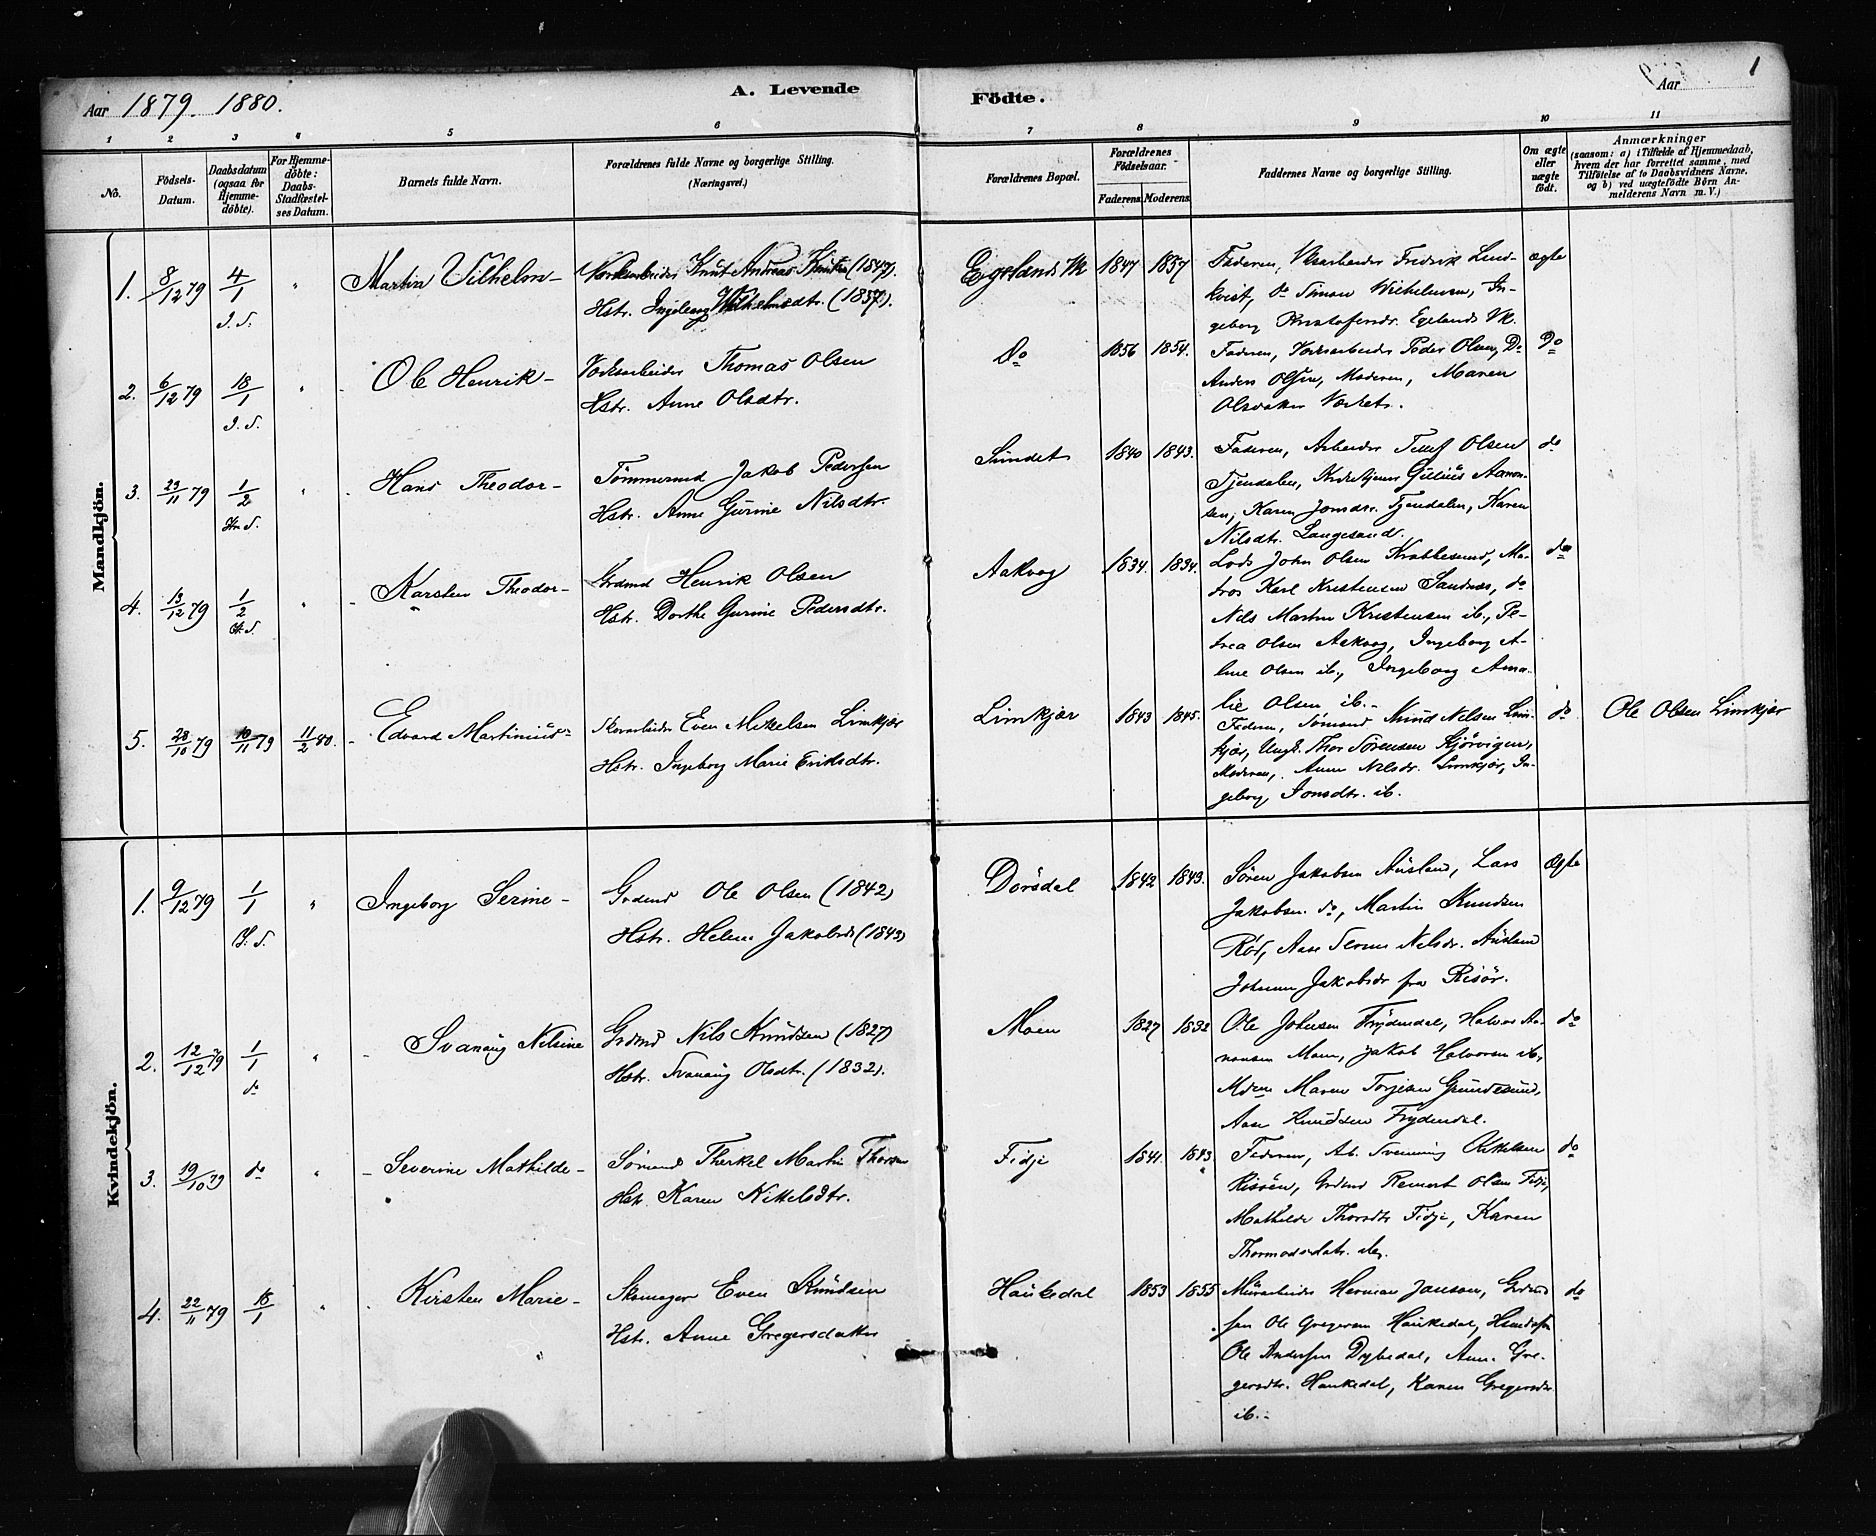 Aar 1879. 1880.
A. Levende
Födte.
Aar
1
1 2 3 4 5 6 7 8 9 10 11
No.
Födsels-
Datum.
Daabsdatum
(ogsaa for
Hjemme-
döbte).
For Hjemme-
döbte:
Daabs-
Stadfæstel-
ses Datum.
Barnets fulde Navn.
Forældrenes fulde Navne og borgerlige Stilling.
(Næringsvei.)
Forældrenes Bopæl.
Forældrenes
Födselsaar.
Faderens. Moderens.
Faddernes Navne og borgerlige Stilling.
Om ægte
eller
uægte
födt.
Anmærkninger
(saasom: a) i Tilfælde af Hjemmedaab,
hvem der har forrettet samme, med
Tilföielse af to Daabsvidners Navne.
og b) ved uægtefödte Børn An-
melderens Navn m. V.)
Mandkjön.
1. 8/12 79 4/1 " Martin Vilhelm- Knut Andreas (1847).
J. S. Hstr. Ingeborg (1857).
Egelands Vk 1847 1857 Faderen, Frederik Lind- ægte
kvist, do Simon In-
geborg Egelands Vk.
2. 6/12 79 18/1 " Ole Henrik- Værksarbeider Thomas Olsen
J. S. Hstr. Anne Olsdtr.
Do 1856 1854. Faderen, Værksarbeider Peder Olsen, Do Do
Anders Olsen, Moderen, Maren
Olsdatter Værket.
3. 23/11 79 1/2 " Hans Theodor- Tömmermd Jakob Pedersen
S. Hstr. Anne Gurine Nilsdtr.
Sundet 1840 1843. Faderen, Arbeider Tellef Olsen do
Tjendalen, Gulius Aanon-
sen, Karen Jonsdr. Tjendalen, Karen
Nilsdtr. Langesand.
4. 13/12 79 1/2 " Karsten Theodor- Grdmd Henrik Olsen
S. Hstr. Dorthe Gurine Pedersdtr.
Aakvog 1834. 1834. Lods John Olsen Krabbesund, Ma- do
tros Karl Kristensen Sandnes, do
Nils Martin Kristensen ib., Pe-
trea Olsen Aakvog, Ingeborg A-
line Olsen ib., Ingeborg Ama-
lie Olsen ib.-
5. 28/10 79 10/11 79 11/2 80. Edvard Martinius- Skovarbeider Even Mikkelsen Limkjær
Hstr. Ingeborg Marie Eriksdtr.
Limkjær 1843 1845. Faderen, Sömand Knud Nilsen Lim- do Ole Olsen Limkjær
kjær, Ungk. Thor Sörensen Kjörvigen,
Moderen, Anne Nilsdr. Limkjær, In-
geborg Jonsdtr. ib.
Kvindekjön.
1. 9/12 79 1/1 " Ingeborg Serine- Grdmd Ole Olsen (1842)
J. S. Hstr. Helene Jakobsdr (1843)
Dorsdal 1842 1843. Sören Jakobsen Ausland, Lars Ægte
Jakobsen do, Martin Knudsen
Röd, Aase Nilsdr. Ausland
Johanne Jakobsdr fra Risör.
2. 12/12 79 1/1 " Svanaug Nilsine Grdmd Nils Knudsen (1827)
do Hstr. Svanaug Olsdtr. (1832).
Moen 1827 1832 Ole Johnsen Frydendal, Halvor Aa- do
nonsen Moen, Jakob Halvorsen ib.,
Maren Torjesen Grundesund,
Aase Knudsen Frydendal.
3. 19/10 79 do " Severine Mathilde- Sömand Therkel Martin Thorsen
Hstr. Karen Nikkelsdtr.
Fidje 1841. 1843. Faderen, Arb. Svenning Olsen do
Risöen, Grdmd Remert Olsen Fidje,
Mathilde Thorsdtr Fidje, Karen
Thormodsdatr. ib.
4. 22/11 79 18/1 " Kirsten Marie- Skomager Even Knudsen
Hstr. Anne Gregersdatter
Haukedal 1853 1855 Murarbeider Herman Jansson, Grdmd do
sön Ole Gregersen Haukedal,
Ole Andersen Dybedal, Anne Gre-
gersdtr. Haukedal, Karen Gregersdr
ib.-